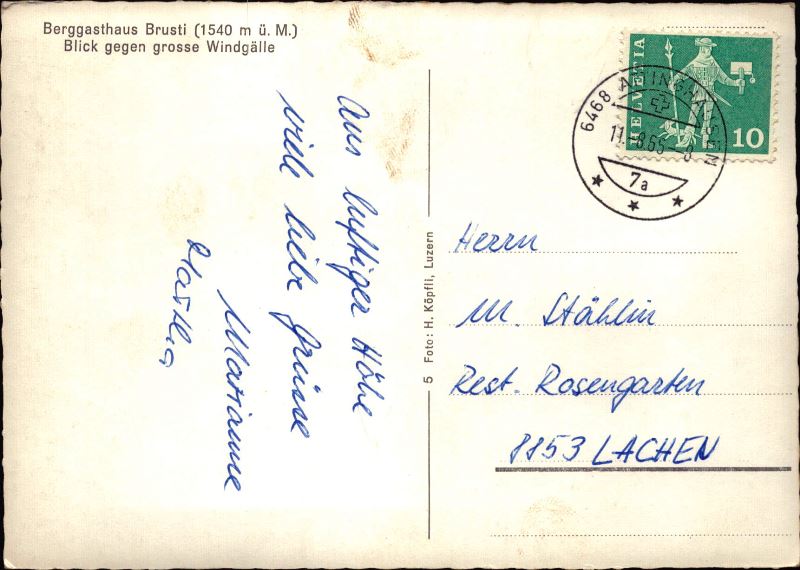 Berggasthaus Brusti (1540 m ü. M.)
Blick gegen grosse Windgälle
Aus luftiger Höhe
viele liebe Grüsse
Marianne
Martha
5 Foto: H. Köpfli, Luzern
HELVETIA
10
6468 ATTINGHAUSEN
11.-8.65.-8
7a
Herrn
M. Stählin
Rest. Rosengarten
8853 LACHEN